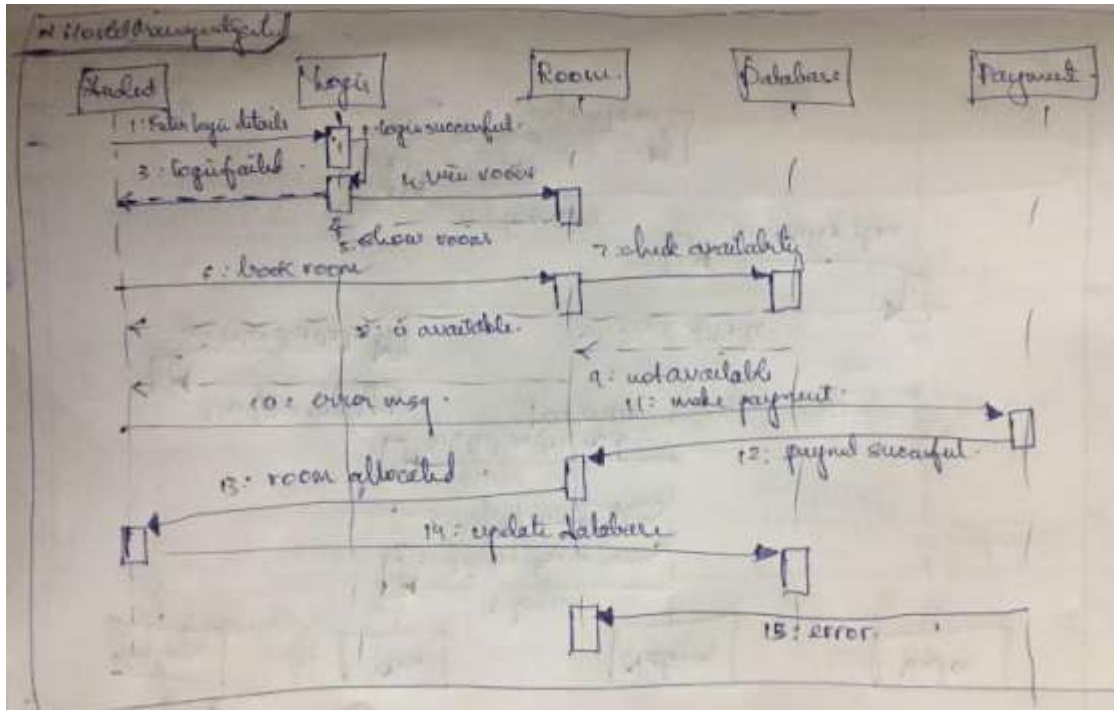 Login
Room
Database
Payment
1: Enter login details
login successful.
3: login failed
4: view rooms
5: show rooms
6: book room
7: check availability
available.
9: not available
10: error msg.
11: make payment.
12: successful.
13: room allocated
14: update database
15: error.